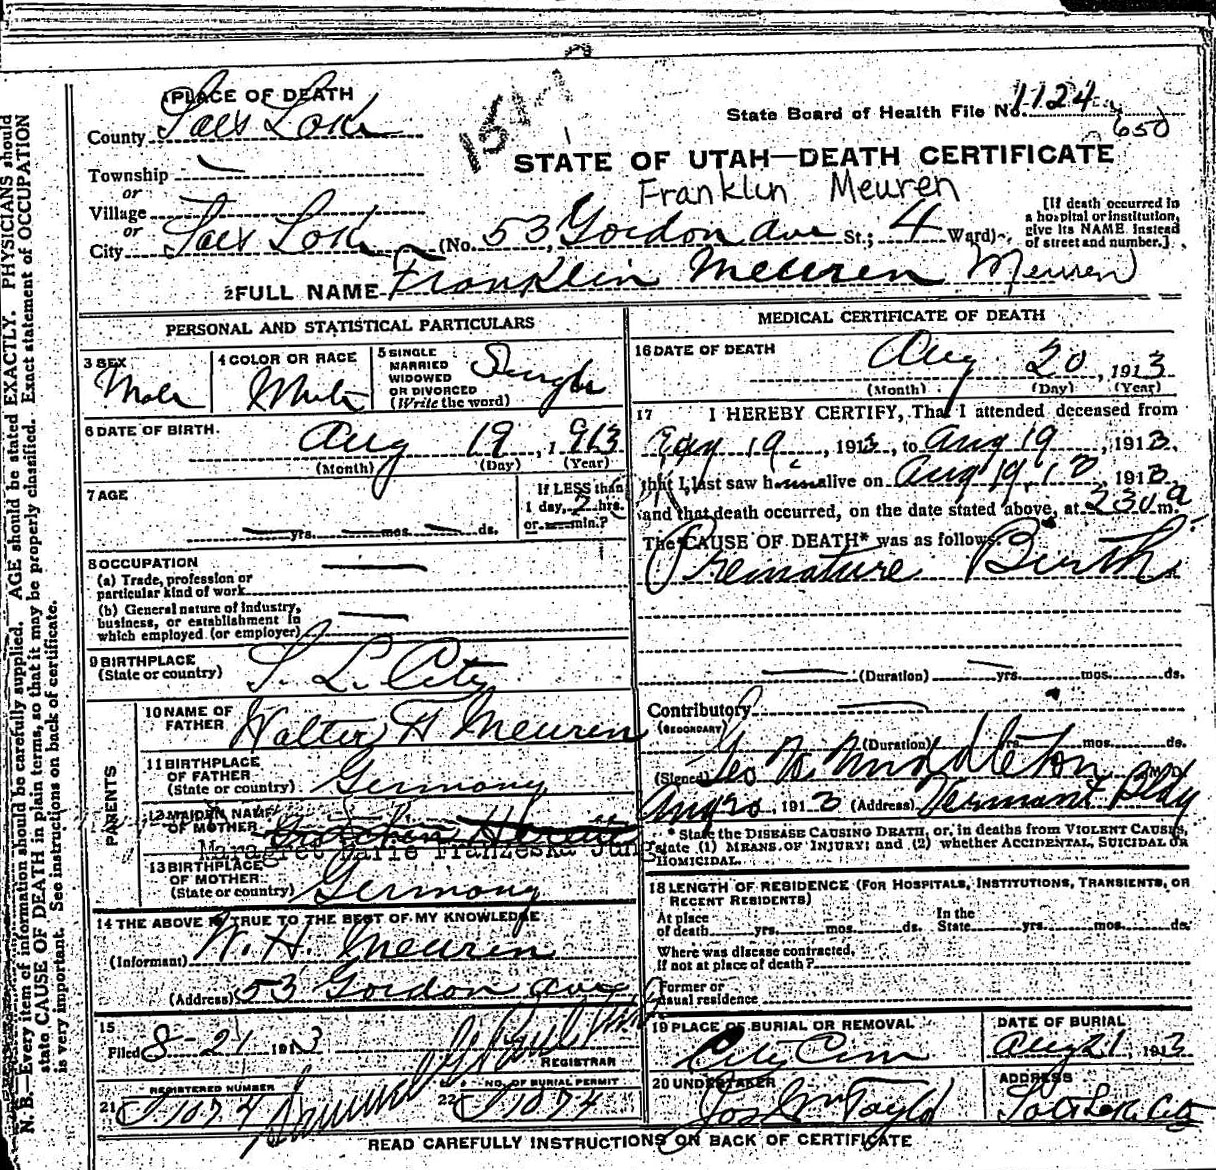 PLACE OF DEATH
County Salt Lake
Township
or
Village
or
City Salt Lake (No. 53, Gordon Ave St.; 4 Ward)
State Board of Health File No. 1124
650
STATE OF UTAH—DEATH CERTIFICATE
Franklin Meuren
[If death occurred in a hospital or institution, give its NAME instead of street and number.]
2 FULL NAME Franklin Meuren Meuren
PERSONAL AND STATISTICAL PARTICULARS
3 SEX Male
4 COLOR OR RACE White
5 SINGLE MARRIED WIDOWED OR DIVORCED (Write the word) Single
6 DATE OF BIRTH. Aug 19, 1913
(Month) (Day) (Year)
7 AGE yrs. mos. ds.
If LESS than
1 day, 2 hrs.
or min.?
8 OCCUPATION
(a) Trade, profession or
particular kind of work
(b) General nature of industry,
business, or establishment in
which employed (or employer)
9 BIRTHPLACE
(State or country) S. L. City
10 NAME OF FATHER Walter H Meuren
PARENTS
11 BIRTHPLACE
OF FATHER
(State or country) Germany
12 MAIDEN NAME
OF MOTHER
Margaret Marie Franzeska Jung
13 BIRTHPLACE
OF MOTHER
(State or country) Germany
14 THE ABOVE IS TRUE TO THE BEST OF MY KNOWLEDGE
(Informant) W. H. Meuren
(Address) 53 Gordon Ave
15
Filed 8-21 1913
REGISTRAR
REGISTERED NUMBER
21 J1074
22 NO. OF BURIAL PERMIT
J1074
MEDICAL CERTIFICATE OF DEATH
16 DATE OF DEATH Aug 20, 1913
(Month) (Day) (Year)
17 I HEREBY CERTIFY, That I attended deceased from
Aug 19, 1913, to Aug 19, 1913,
that I last saw him alive on Aug 19, 1913
and that death occurred, on the date stated above, at 230 a m.
The CAUSE OF DEATH* was as follows:
Premature Birth
(Duration) yrs. mos. ds.
Contributory
(SECONDARY)
(Duration) yrs. mos. ds.
(Signed) Geo W Middleton M.D.
Aug 20, 1913 (Address) Vermont Bldg
* State the DISEASE CAUSING DEATH, or, in deaths from VIOLENT CAUSES,
state (1) MEANS OF INJURY; and (2) whether ACCIDENTAL, SUICIDAL OR
HOMICIDAL.
18 LENGTH OF RESIDENCE (FOR HOSPITALS, INSTITUTIONS, TRANSIENTS, OR
RECENT RESIDENTS)
At place of death yrs. mos. ds. In the State yrs. mos. ds.
Where was disease contracted,
if not at place of death?
Former or
usual residence
19 PLACE OF BURIAL OR REMOVAL
City Cem
DATE OF BURIAL
Aug 21, 1913
20 UNDERTAKER
Jos Wm Taylor
ADDRESS
Salt Lake City
READ CAREFULLY INSTRUCTIONS ON BACK OF CERTIFICATE
N. B.—Every item of information should be carefully supplied. AGE should be stated EXACTLY. PHYSICIANS should
state CAUSE OF DEATH in plain terms, so that it may be properly classified. Exact statement of OCCUPATION
is very important. See instructions on back of certificate.